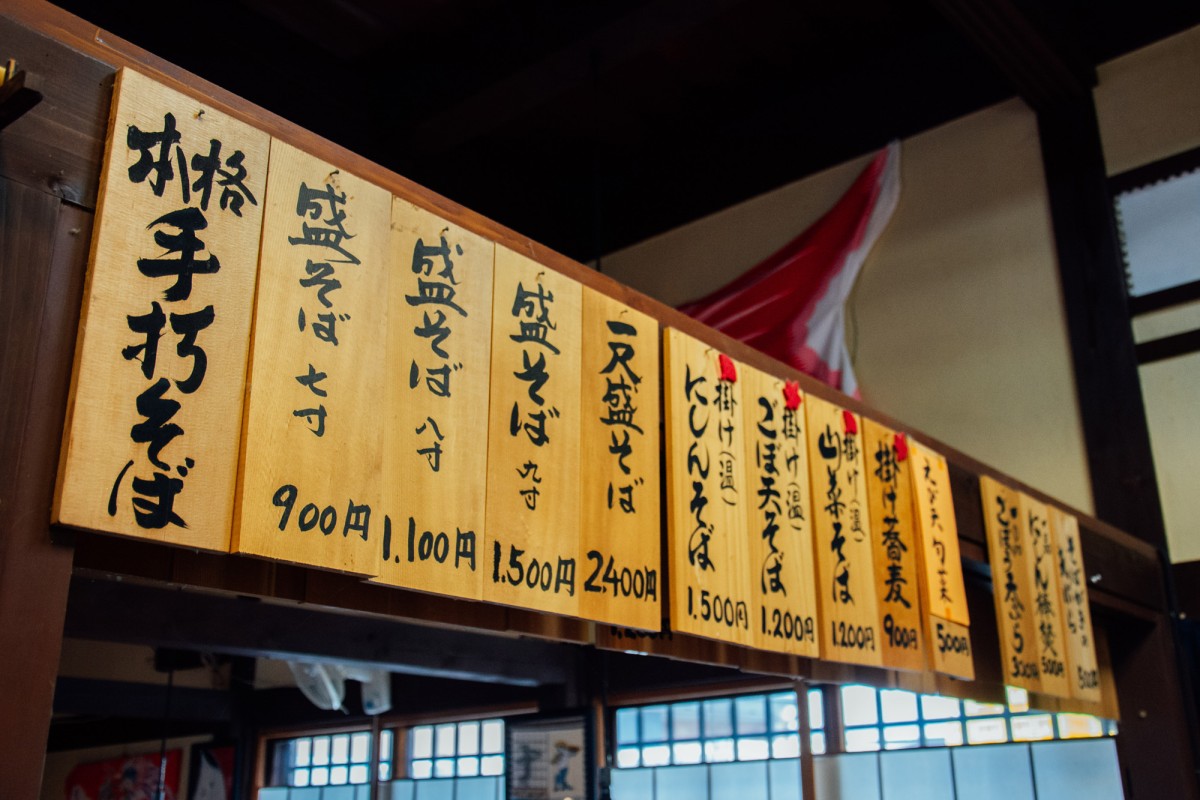 本格
手打
そば
盛そば 七寸
900円
盛そば 八寸
1.100円
盛そば 九寸
1.500円
一尺盛そば
2.400円
掛け(温)
にしんそば
1.500円
掛け(温)
ごぼ天そば
1.200円
掛け(温)
山菜そば
1.200円
掛け蕎麦
900円
500円
300円
500円